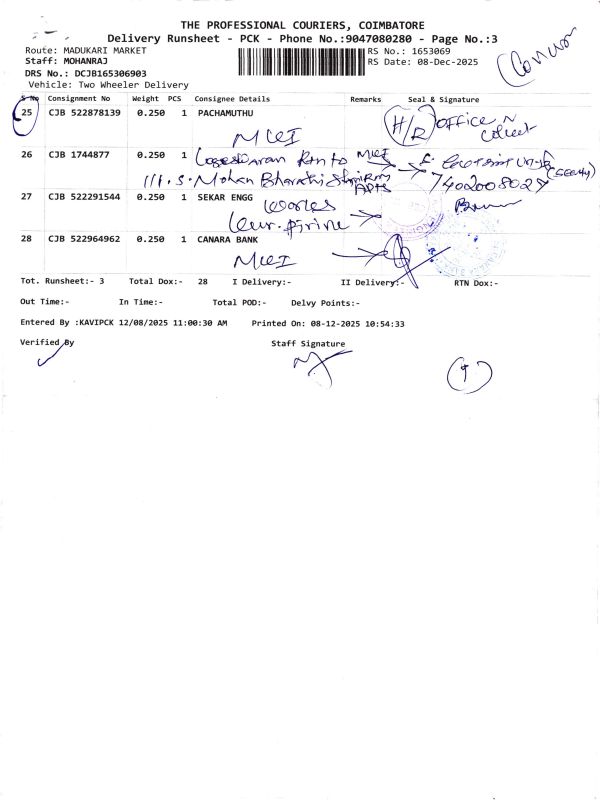 THE PROFESSIONAL COURIERS, COIMBATORE
Delivery Runsheet - PCK - Phone No.:9047080280 - Page No.:3
Route: MADUKARI MARKET RS No.: 1653069
Staff: MOHANRAJ RS Date: 08-Dec-2025
DRS No.: DCJB165306903
Vehicle: Two Wheeler Delivery
S No Consignment No Weight PCS Consignee Details Remarks Seal & Signature
25 CJB 522878139 0.250 1 PACHAMUTHU H/R office
26 CJB 1744877 0.250 1
Mohan Bharathi 7402008027
27 CJB 522291544 0.250 1 SEKAR ENGG Works
28 CJB 522964962 0.250 1 CANARA BANK
Tot. Runsheet:- 3 Total Dox:- 28 I Delivery:- II Delivery:- RTN Dox:-
Out Time:- In Time:- Total POD:- Delvy Points:-
Entered By :KAVIPCK 12/08/2025 11:00:30 AM Printed On: 08-12-2025 10:54:33
Verified By Staff Signature